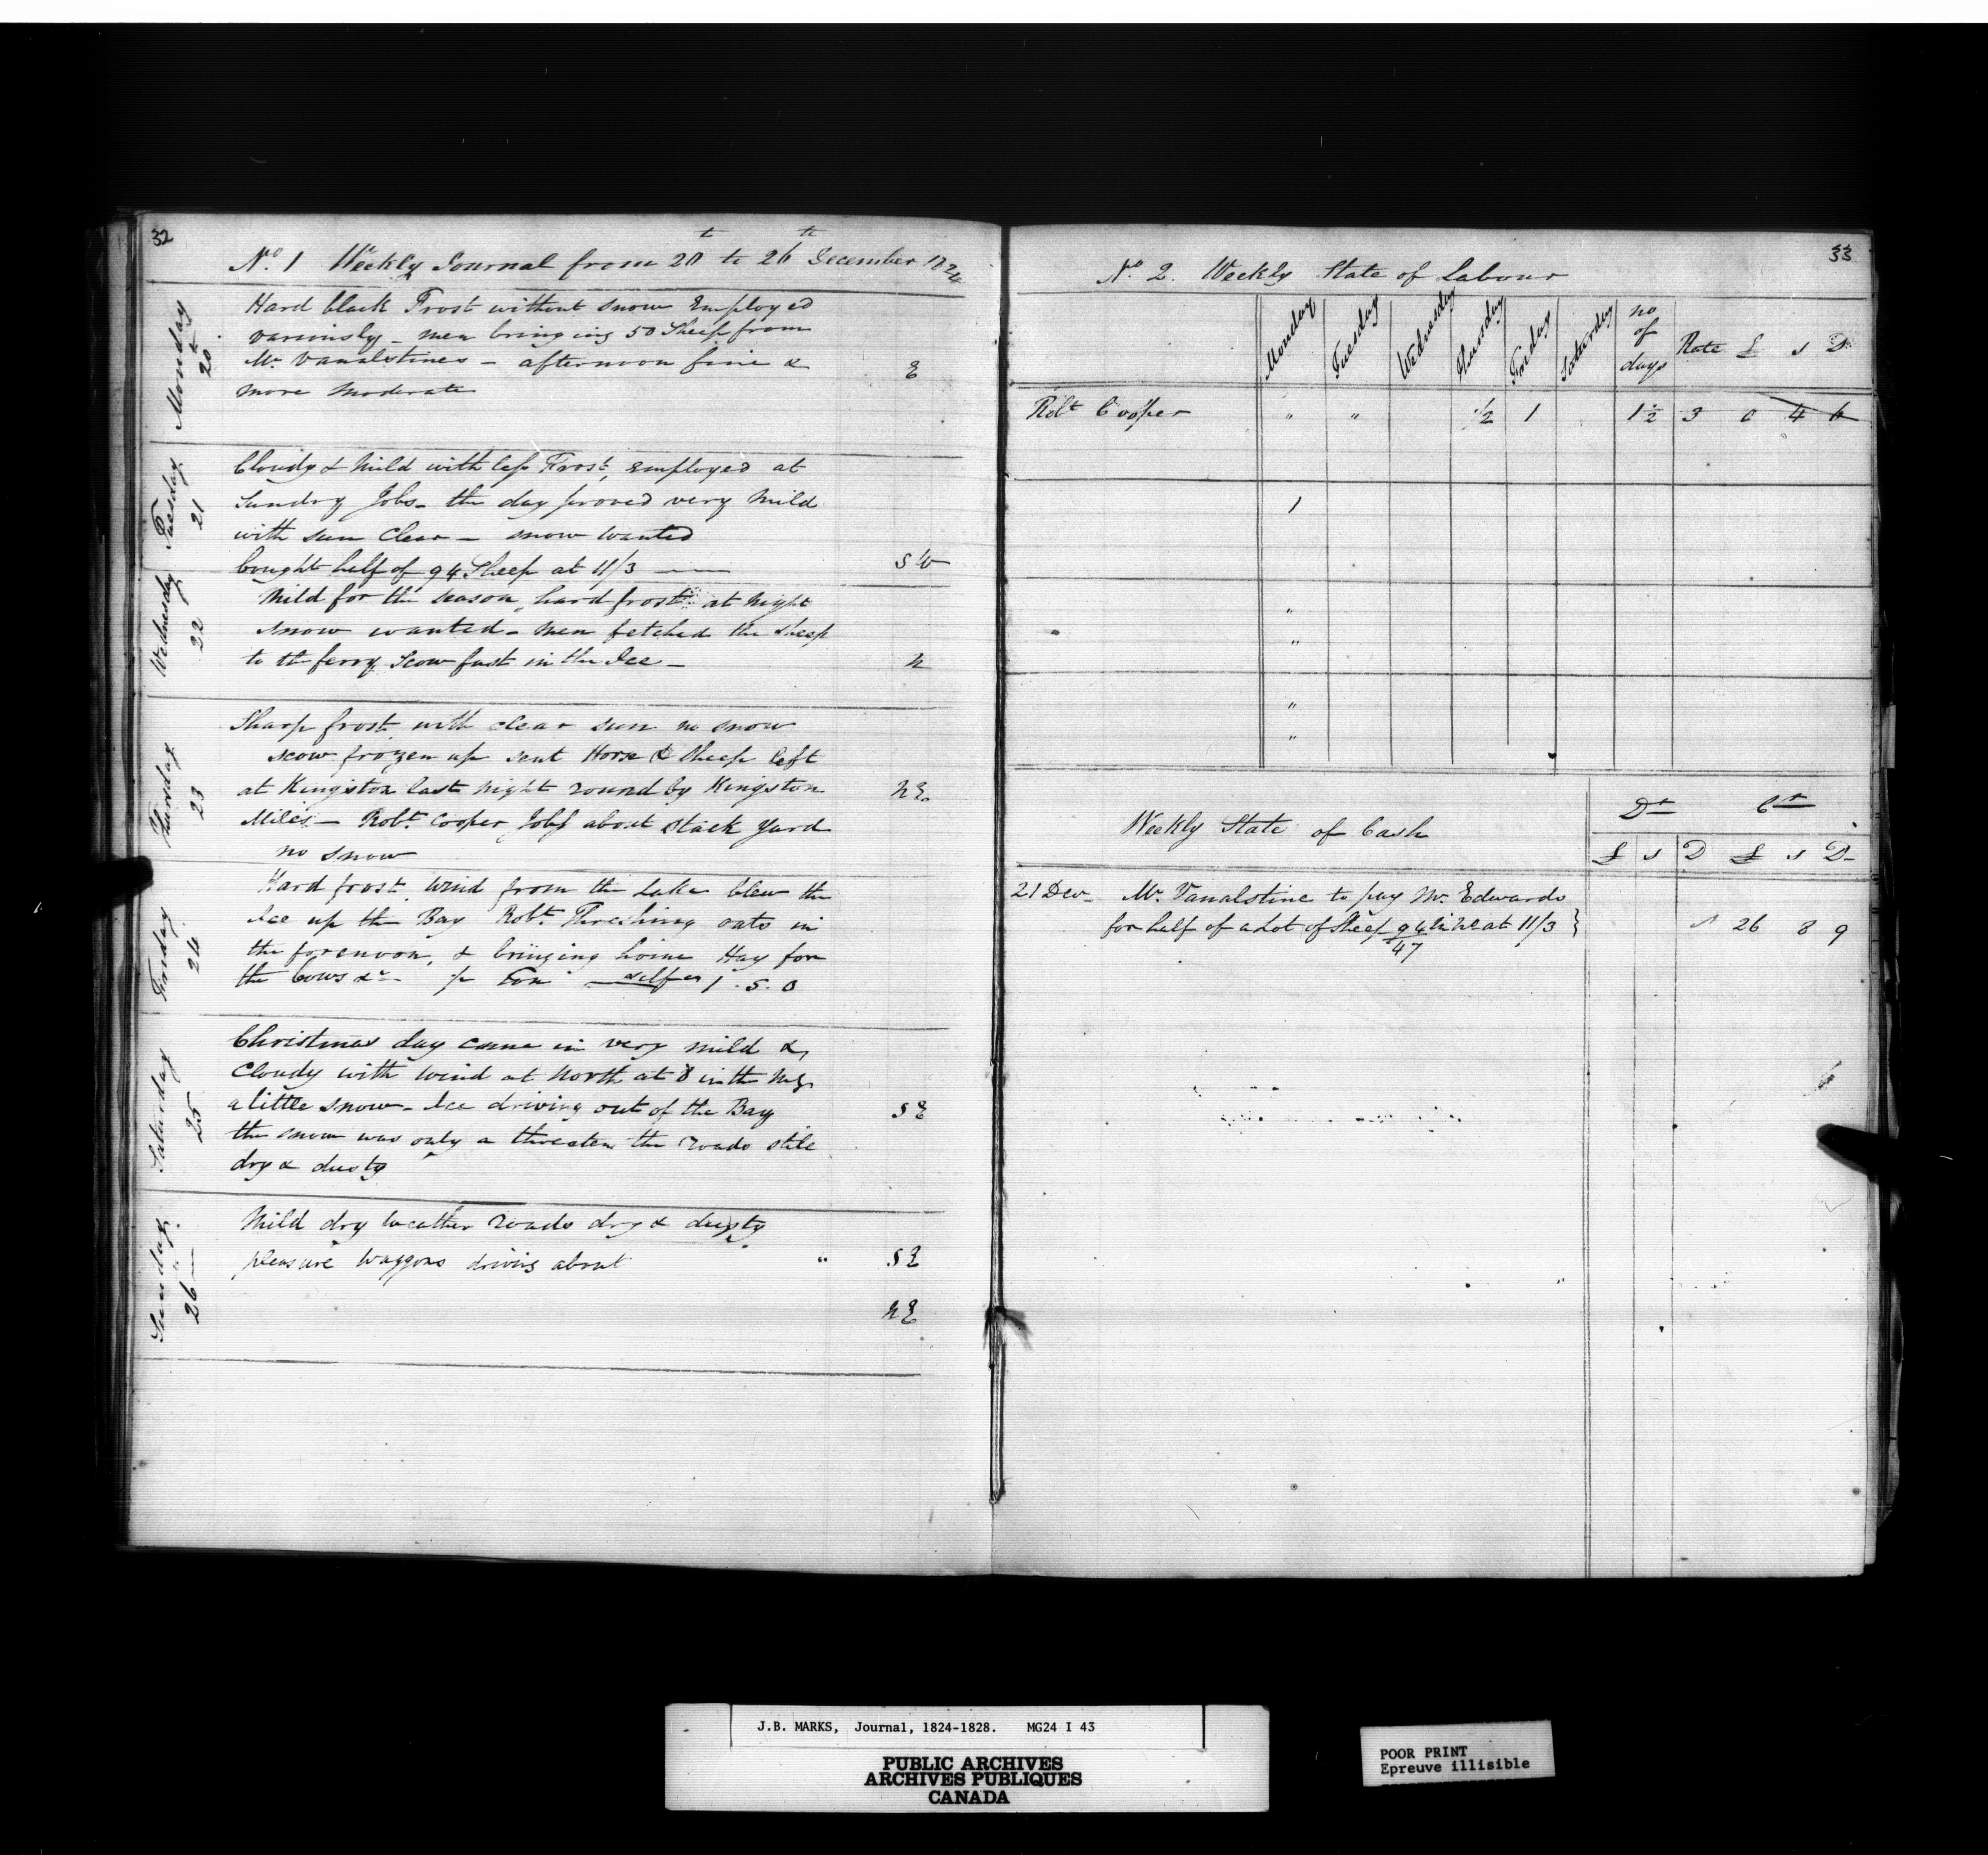 32
No. 1 Weekly Journal from 20th to 26th December 1824
Monday 20
Hard black Frost without snow Employed
variously - men bringing 50 Sheep from
Mr. Vanalstines - afternoon fine &
more moderate
E
Tuesday 21
Cloudy & Mild with less Frost, employed at
Sundry Jobs - the day proved very Mild
with sun clear - snow wanted
bought half of 94 Sheep at 11/3
SW
Wednesday 22
Mild for the season, hard frost at night
snow wanted - Men fetched the sheep
to the ferry, Scow fast in the Ice -
N
Thursday 23
Sharp frost with clear sun no snow
scow frozen up sent Horse & Sheep left
at Kingston last night round by Kingston
Mills - Robt. Cooper Jobs about Stack Yard
no snow
NE
Friday 24
Hard frost, wind from the Lake blew the
Ice up the Bay Robt. Threshing oats in
the forenoon, & bringing home Hay for
the Cows &c - pr Ton 1.5.0
Saturday 25
Christmas day came in very mild &
Cloudy with wind at North at 8 in the Mg
a little snow - Ice driving out of the Bay
the snow was only a threaten the roads stile
dry & dusty
SE
Sunday 26
Mild dry weather roads dry & dusty
pleasure waggons driving about "
SE
NE
33
No. 2. Weekly State of Labour
Monday Tuesday Wednesday Thursday Friday Saturday no of days Rate £ s D
Robt Cooper " " 1/2 1 1 1/2 3 0 4 6
1
"
"
"
"
Weekly State of Cash
Dr Cr
£ s D £ s D
21 Decr Mr. Vanalstine to pay Mr. Edwards
for half of a Lot of Sheep 94 in no at 11/3 } 26 8 9
47
J.B. MARKS, Journal, 1824-1828. MG24 I 43
PUBLIC ARCHIVES
ARCHIVES PUBLIQUES
CANADA
POOR PRINT
Epreuve illisible